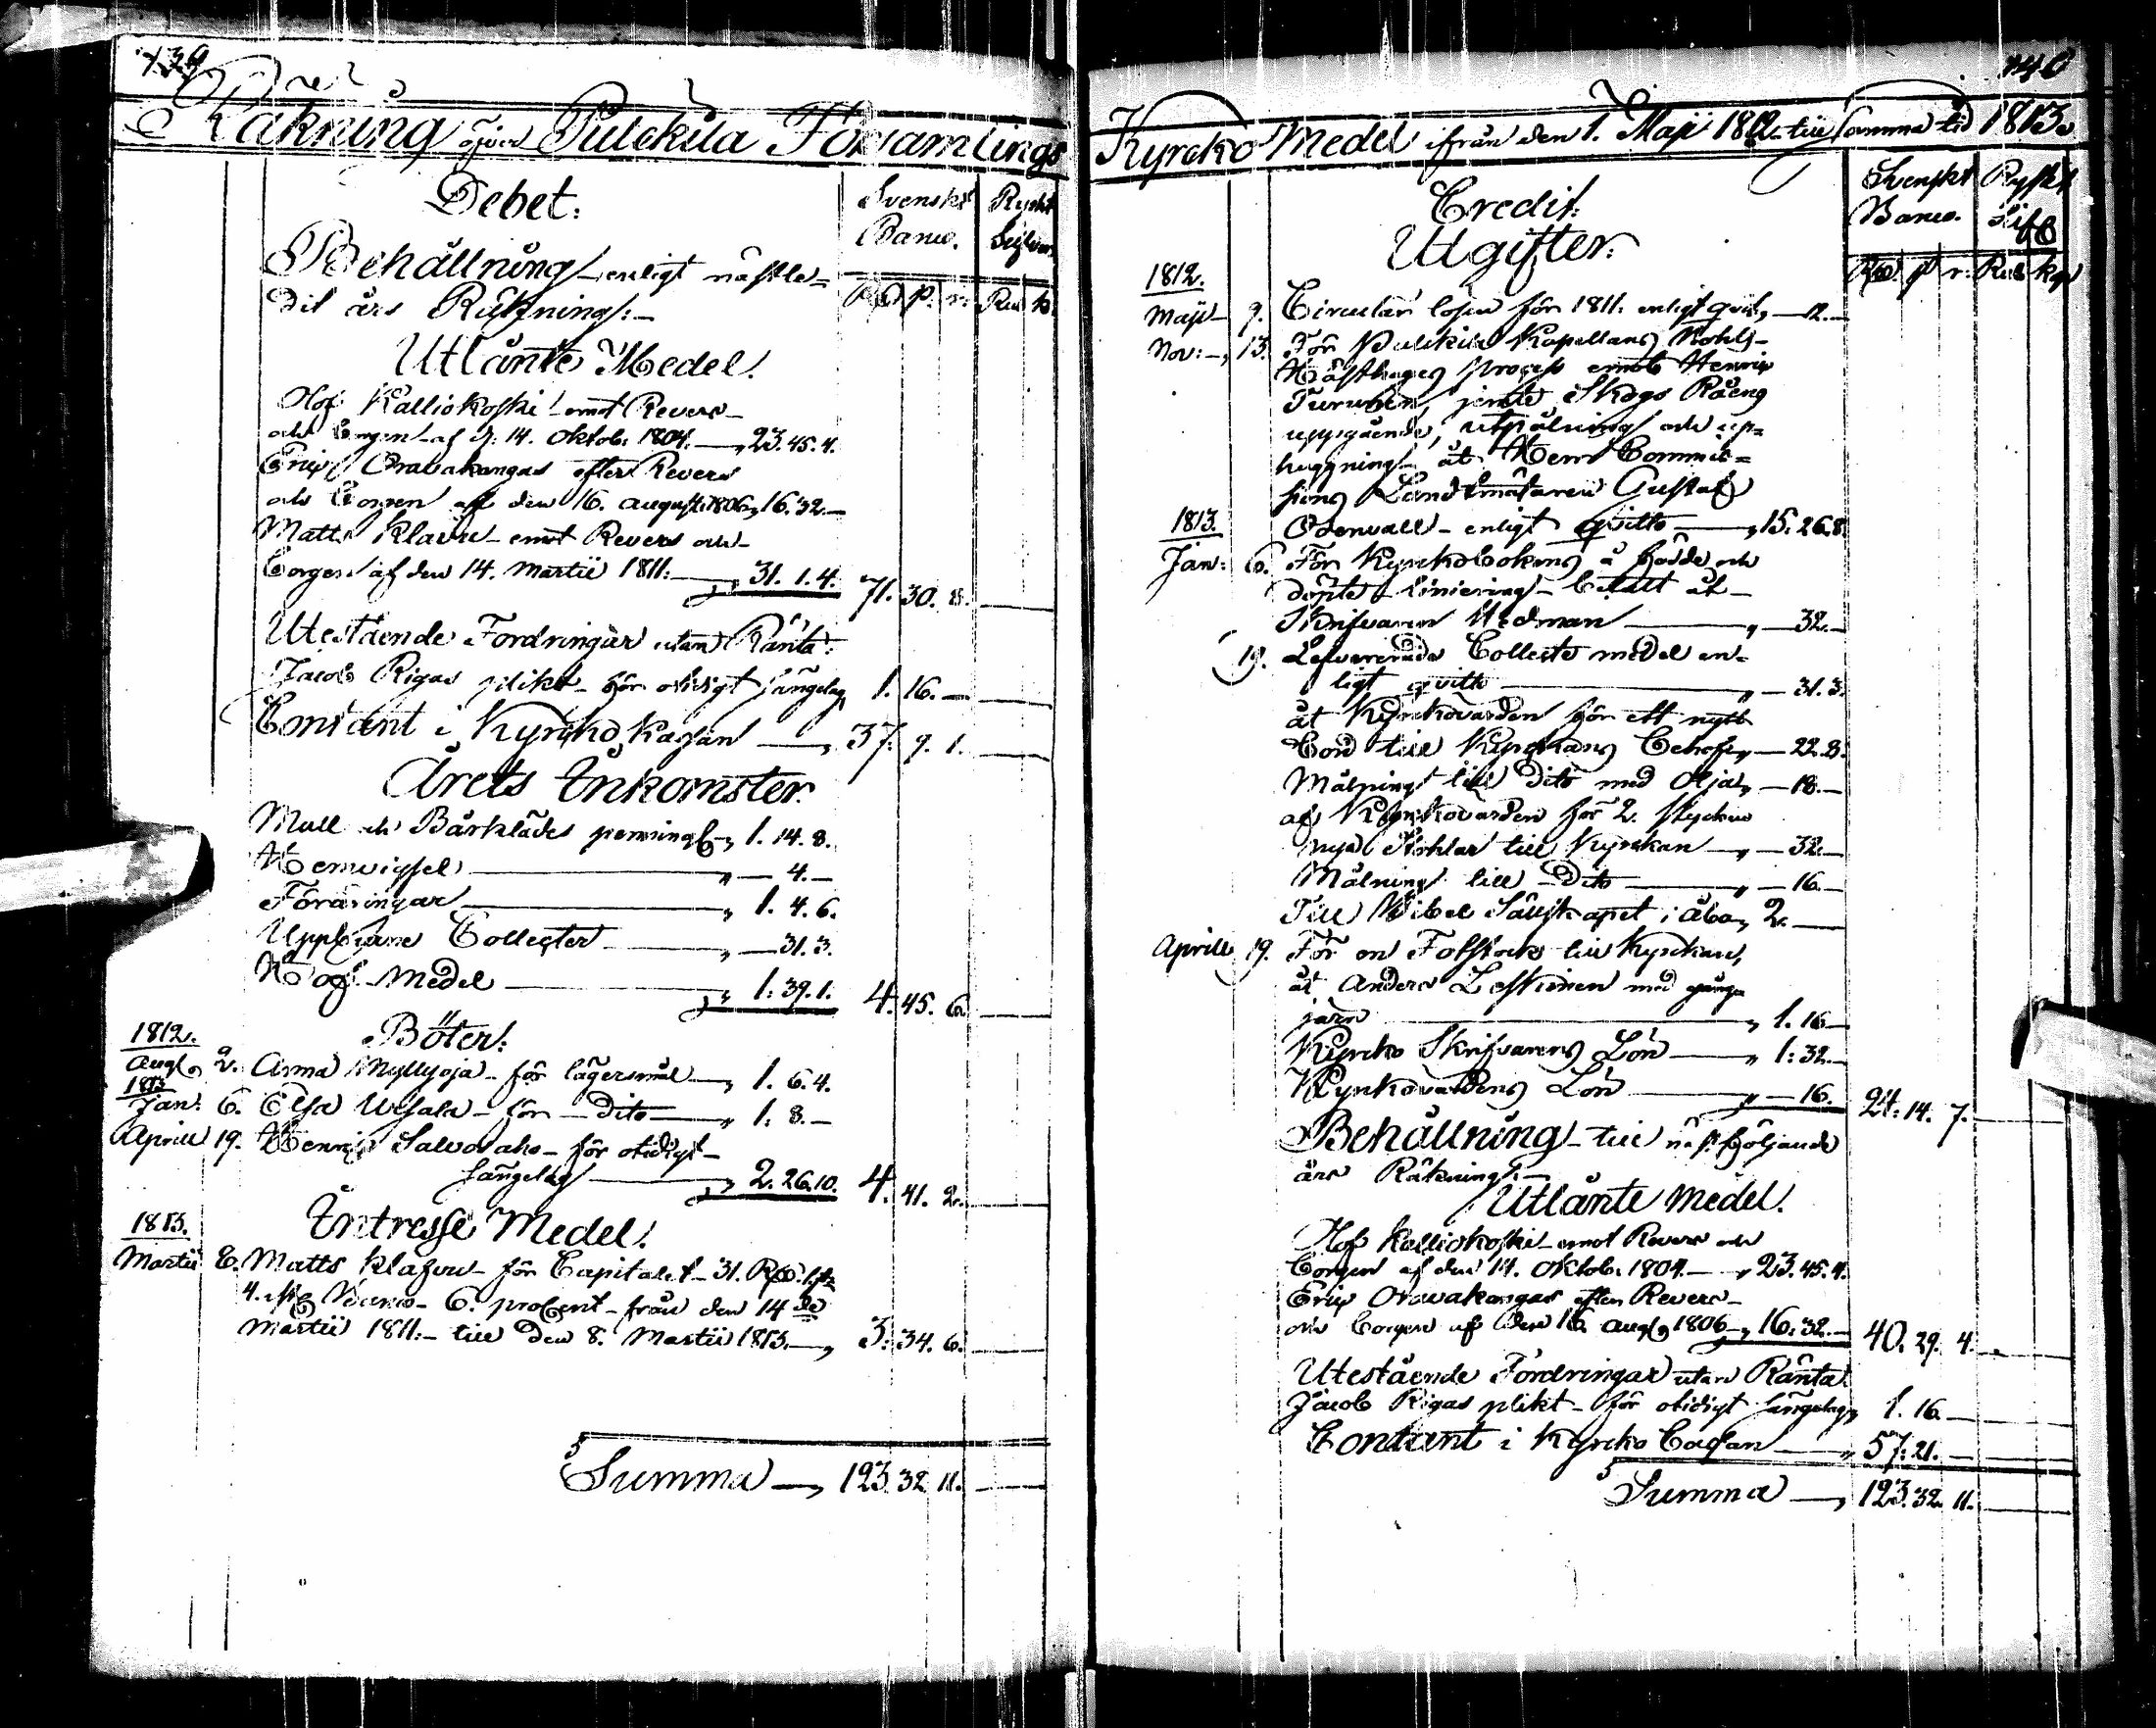 139
Räkning öfver Pulckila Församlings
Debet.
Svenskt Ryskt
Banco. Silfver
Behållning enligt nästle=
RD p. r. Rub k.
dit års Räkning:—
Utlånte Medel.
Olof Kalliokoski emot Revers
och Borgen af d: 14. Oktob: 1804. — 23.45.4.
Eric Oravakangas efter Revers
och Borgen af den 16. August 1806 „ 16.32.—
Matts Klavu emot Revers och
Borgen af den 14. Martii 1811: — „ 31. 1. 4. 71. 30. 8.
Utestående Fordringar utan Ränta:
Jacob Rigas plikt för otidigt sängelag, 1. 16. —
Contant i Kyrcko Kassan — „ 37. 9. 1.
Årets Inkomster.
Mull och Bårklädes penningar „ 1. 14. 8.
Hemvigsel — „ — 4. —
Föräringar — „ 1. 4. 6.
Uppburne Collecter — „ — 31. 3.
Håf Medel — „ 1. 39. 1. 4. 45. 6.
1812. Böter:
Aug. 2. Anna Myllyoja för lägersmål — „ 1. 6. 4.
1813
Jan: 6. Elsa Uusala för Dito — „ 1. 8. —
Aprill 19. Henric Salvoraho för otidigt
sängelag — „ 2. 26. 10. 4. 41. 2.
1813. Intresse Medel.
Martii 8. Matts Klavu för Capitalet 31. RD 1
4. Banco 6. procent från den 14de
Martii 1811: till den 8. Martii 1813. —, 3. 34. 6.
Summa —, 123. 32. 11.
140
Kyrcko Medel ifrån den 1. Maji 1812 till samma tid 1813.
Credit. Svenskt Ryskt
Banco. Silf
Utgifter.
RD. p r: Rub kop
1812.
Maji 9. Circulair losen för 1811: enligt qvit, — 12. —
Nov: 13. För Pulckila Kapellans Bohls
Hästhages process emot Henric
Turunen, jemte Skogs Råens
uppgående, utpålning och up=
huggning åt Herr Commis=
sions Landtmätaren Gustaf
1813. Osenvall enligt qvitto — „ 15. 26. 8.
Jan: 6. För Kyrckobokens å födde och
döpte liniering betalt åt
Skrifvaren Widman — „ — 32. —
19. Lefvererade Collecte medel en=
ligt qvitto — „ — 31. 3.
åt Kyrckovärden för ett nytt
Bord till Kyrckans behof, — 22. 8.
Målning till Dito med olja, — 18. —
af Kyrckovärden för 2. stycken
nya Stolar till Kyrckan — „ — 32. —
Målning till Dito — „ — 16. —
Till Bibel Sällskapet i Åbo, 2. —
Aprill 19. För en Fotstock till Kyrckan,
åt Anders Leskinen med gångjärn — „ 1. 16 —
Kyrcko Skrifvarens Lön — „ 1: 32. —
Kyrckovärdens Lön — „ — 16. 24. 14. 7.
Behållning till nästföljande
års Räkning:—
Utlånte Medel.
Olof Kalliokoski emot Revers och
Borgen af den 14. Oktob: 1804. — „ 23. 45. 4.
Eric Oravakangas efter Revers
och Borgen af den 16. Aug. 1806 — „ 16: 32. — 40. 29. 4.
Utestående Fordringar utan Ränta
Jacob Rigas plikt för otidigt sängelag, 1. 16. —
Contant i Kyrcko Cassan — „ 57: 21. —
Summa —, 123. 32. 11.